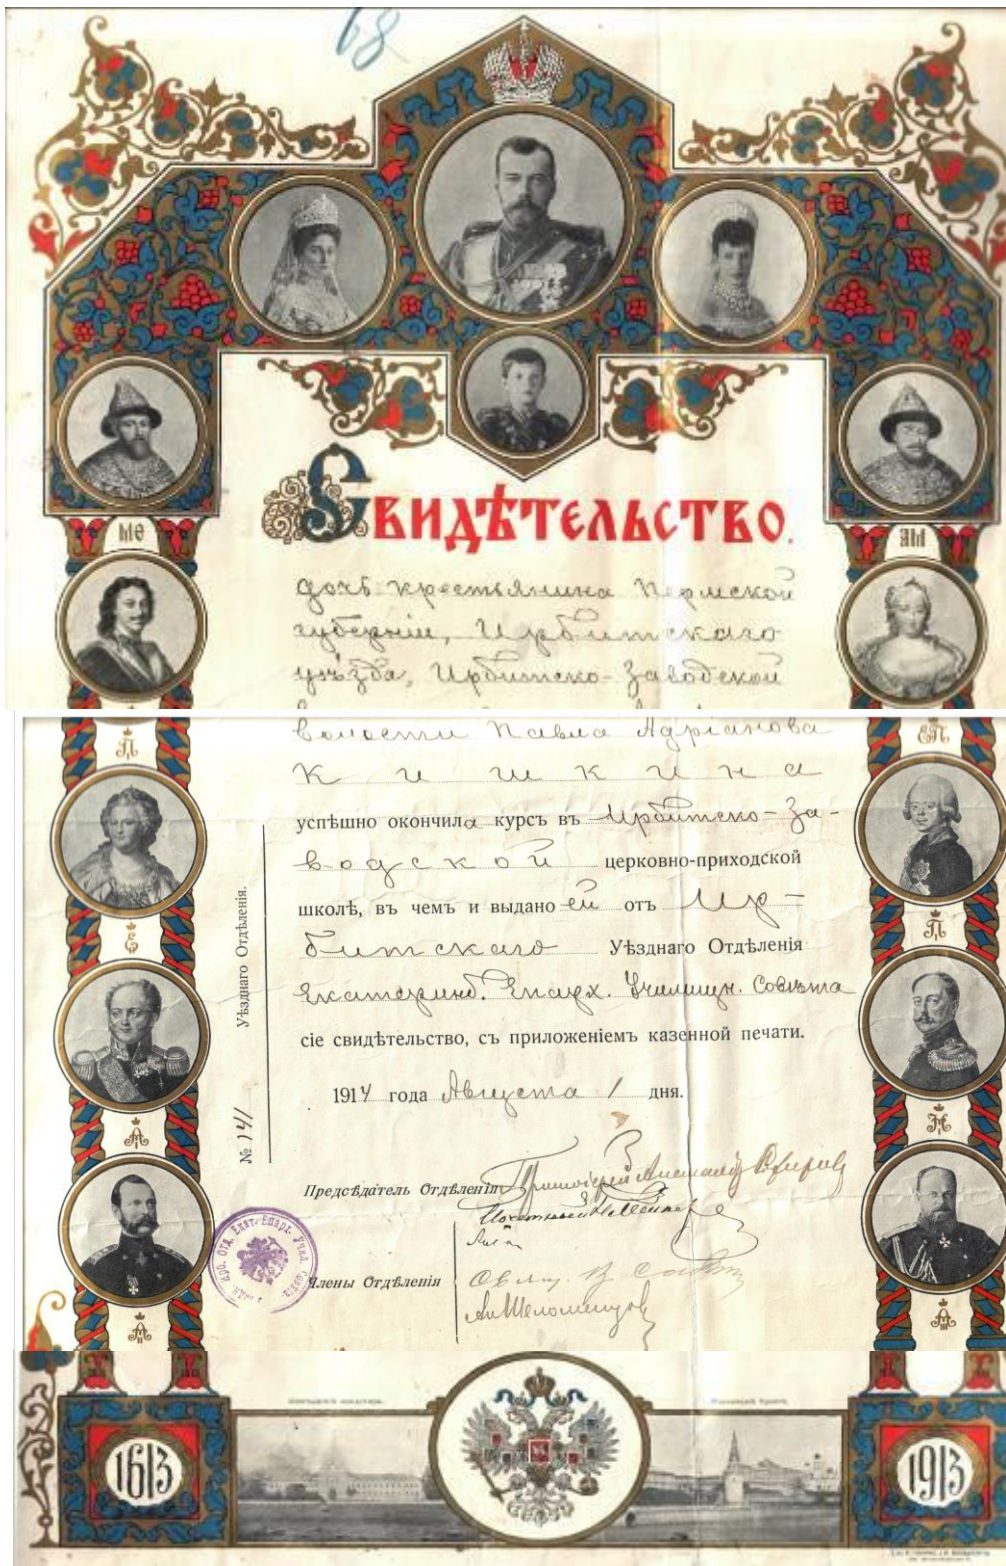 68
СВИДѢТЕЛЬСТВО.
дочь крестьянина Пермской
губерніи, Ирбитскаго
уѣзда, Ирбитско-Заводской
волости Павла Адріанова
Кишкина
успѣшно окончила курсъ въ Ирбитско-За-
водской церковно-приходской
школѣ, въ чемъ и выдано ей отъ Ир-
битскаго Уѣзднаго Отдѣленія
Екатеринб. Епарх. Училищн. Совѣта
сіе свидѣтельство, съ приложеніемъ казенной печати.
1914 года Августа 1 дня.
№ 141
Уѣзднаго Отдѣленія.
Предсѣдатель Отдѣленія Протоіерей
Члены Отдѣленія
1613
1913